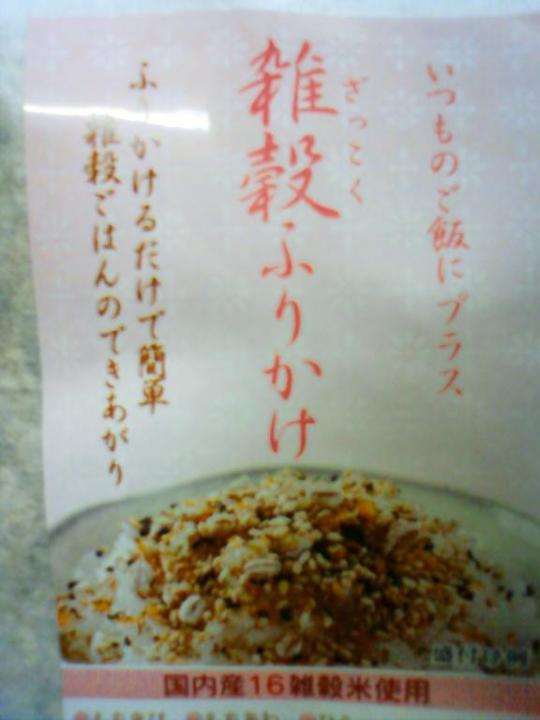 いつものご飯にプラス
ざっこく
雑穀ふりかけ
ふりかけるだけで簡単
雑穀ごはんのできあがり
国内産16雑穀米使用